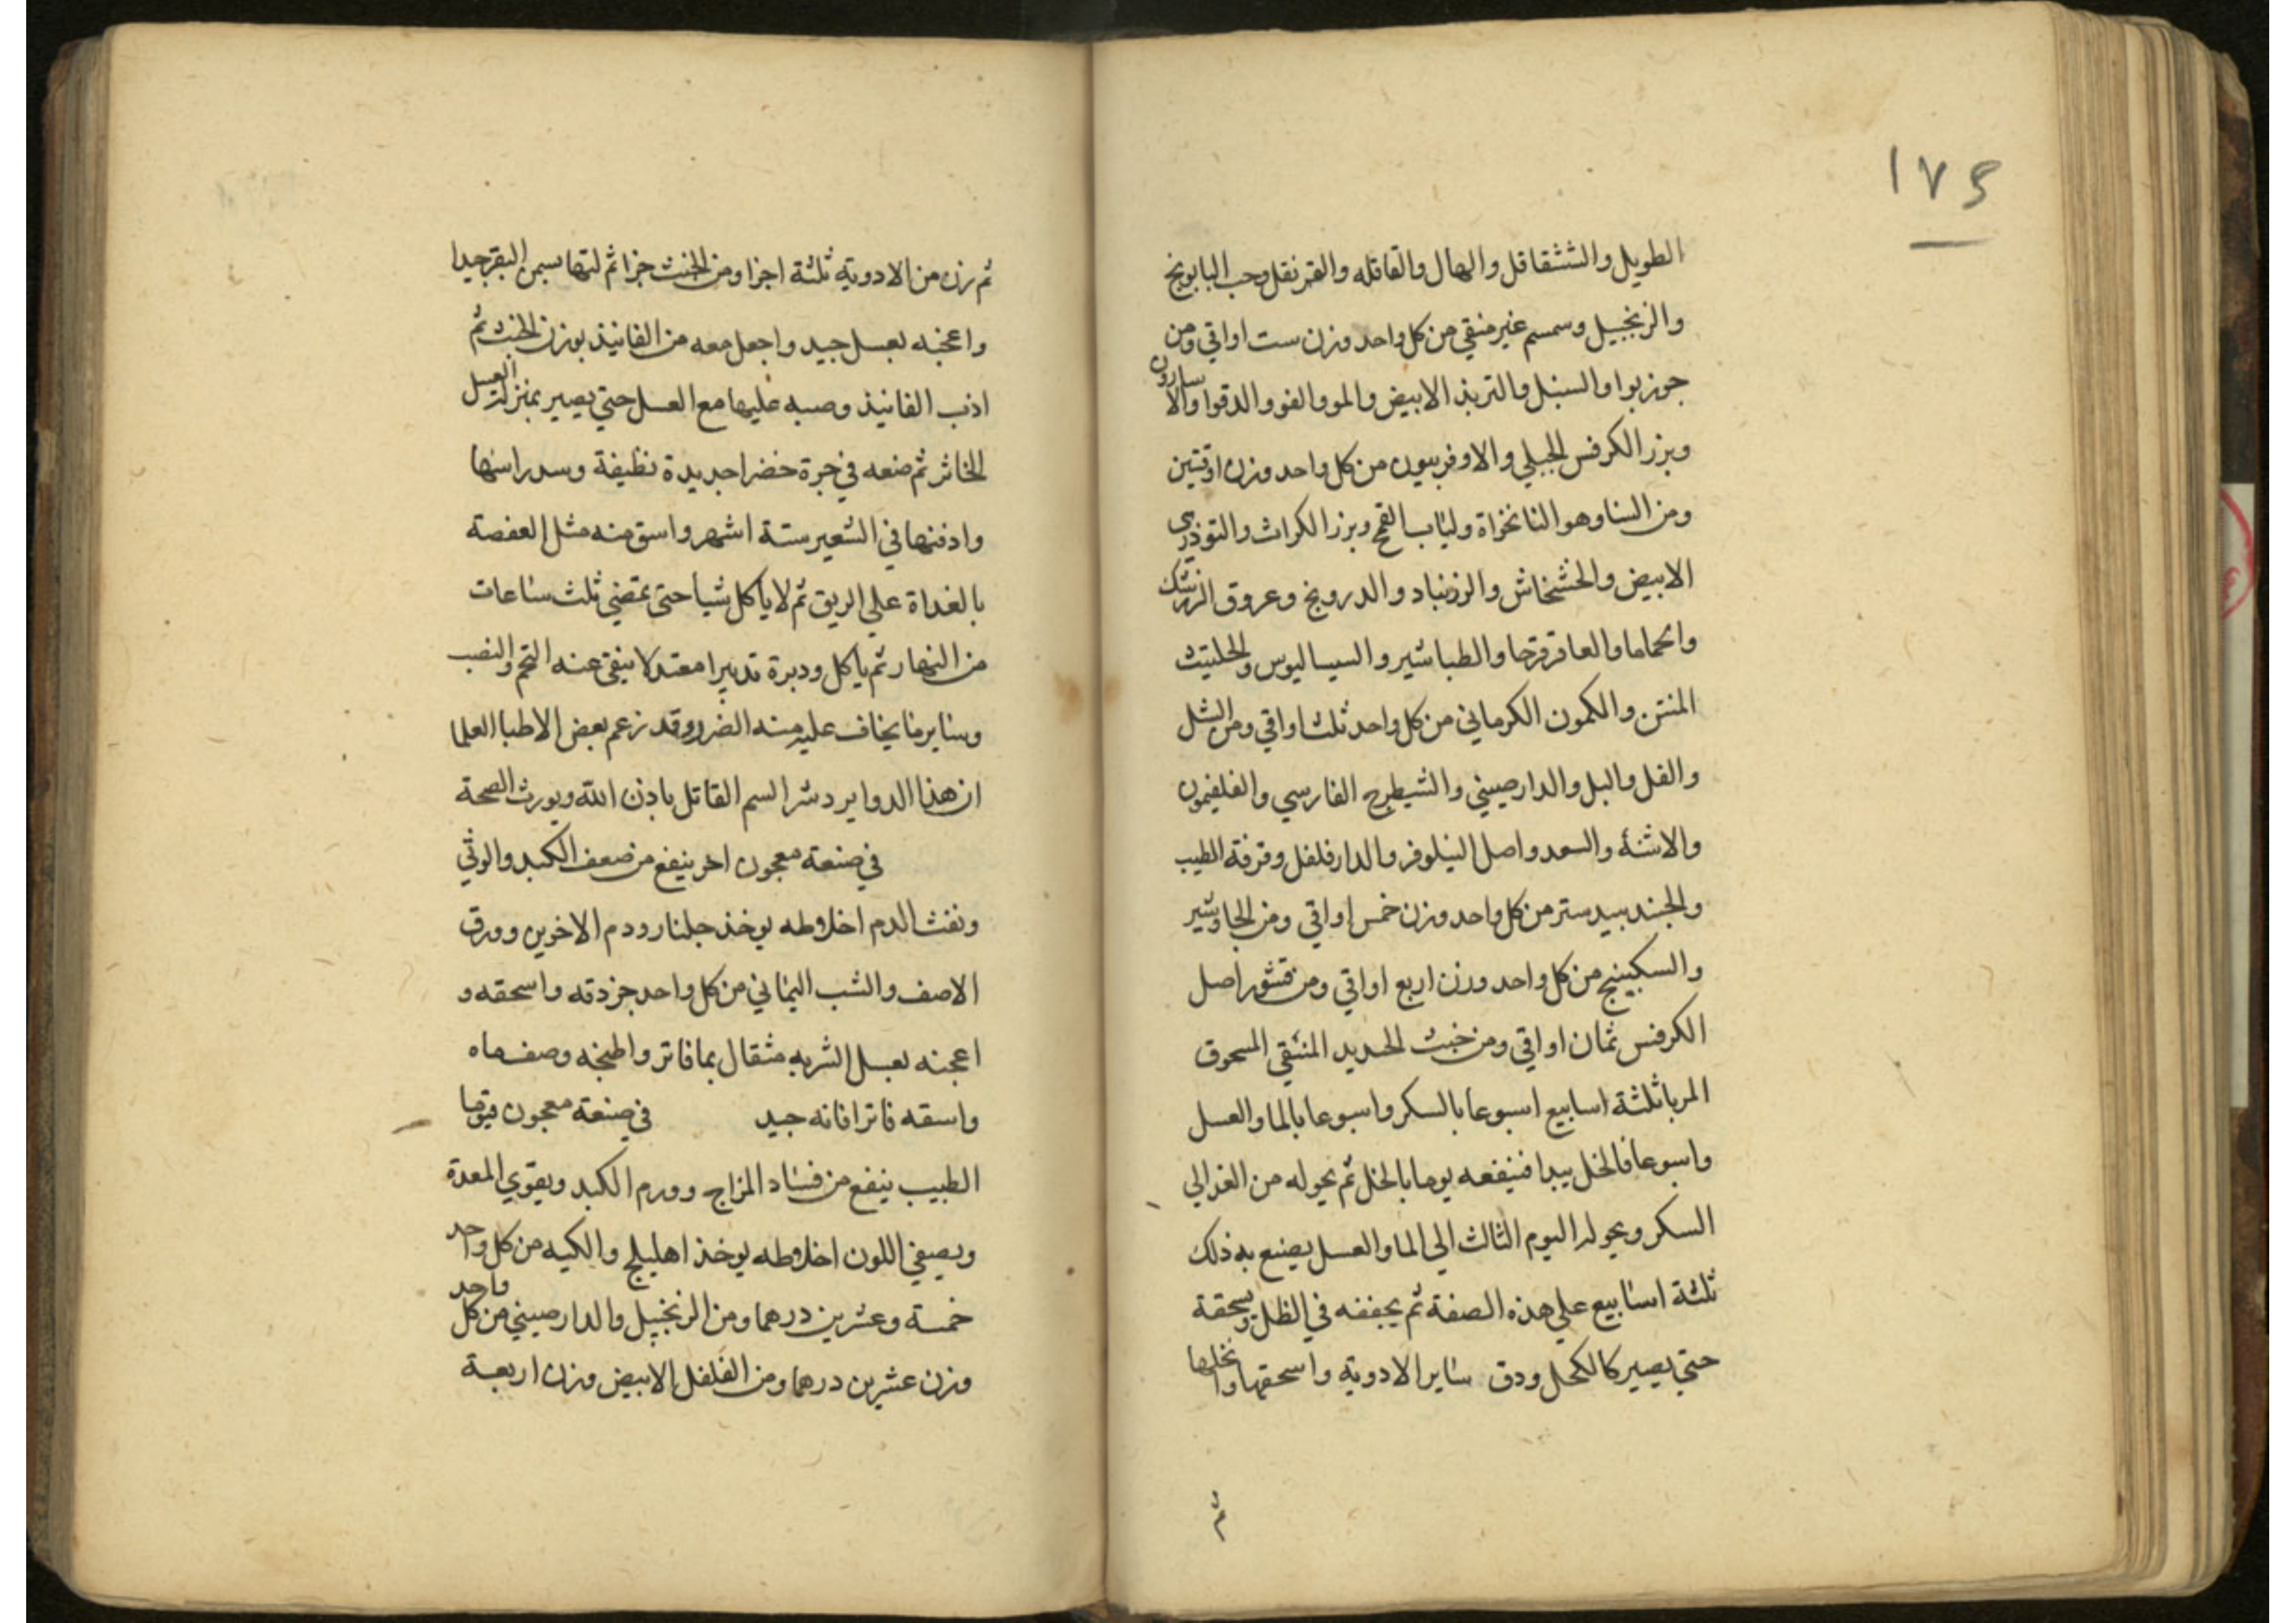 ١٧٤
الطويل والششقاقل والهال والقاقله والقرنفل وحب البابونج
والزنجبيل وسمسم غير منقي من كل واحد وزن ست اواقي ومن
جوزبوا والسنبل والتربذ الابيض والمو والفو والدقوا والاسارون
وبزر الكرفس الجبلي والاوفربيون من كل واحد وزن اوقتين
ومن السنا وهو النانخواة ولباب القمح وبزر الكراث والتوذري
الابيض والخشخاش والزرنباد والدرونج وعروق الزرشك
والحماما والعاقرقرحا والطباشير والسيساليوس والحلتيت
المنتن والكمون الكرماني من كل واحد ثلث اواقي ومن الشل
والفل والبل والدارصيني والشيطرج الفارسي والفلفيمون
والاشنة والسعد واصل النيلوفر والدارفلفل وقرفة الطيب
والجندبيدستر من كل واحد وزن خمس اواقي ومن الجاوشير
والسكبينج من كل واحد وزن اربع اواقي ومن قشور اصل
الكرفس ثمان اواقي ومن خبث الحديد المنقي المسحوق
المربا ثلثة اسابيع اسبوعا بالسكر واسبوعا بالما والعسل
واسبوعا فالخل يبدا فينقعه يوما بالخل ثم يحوله من الغد الي
السكر ويحوله اليوم الثالث الي الما والعسل يصنع به ذلك
ثلثة اسابيع علي هذه الصفة ثم يجففه في الظل ويسحقة
حتي يصير كالكحل ودق ساير الادوية واسحقها وانخلها
ثم
ثم زن من الادوية ثلثة اجزا ومن الخبث جزا ثم لتها بسمن البقر جيدا
واعجنه بعسل جيد واجعل معه من الفانيذ بوزن الخبث ثم
اذب الفانيذ وصبه عليها مع العسل حتي يصير بمنزلة العسل
الخاثر ثم ضعه في جرة خضرا جديدة نظيفة وسد راسها
وادفنها في الشعير ستة اشهر واسق منه مثل العفصة
بالغداة علي الريق ثم لا ياكل شيا حتي تمضي ثلث ساعات
من النهار ثم ياكل ودبرة تدبيرا معتدلا ينفي عنه التخم والنصب
وساير ما يخاف عليه منه الضرر وقد زعم بعض الاطبا العلما
ان هذا الدوا يرد شر السم القاتل باذن الله ويورث الصحة
في صنعة معجون اخر ينفع من ضعف الكبد والوثي
ونفث الدم اخلاطه يوخذ جلنار ودم الاخوين وورق
الاصف والشب اليماني من كل واحد جز دقه واسحقه و
اعجنه بعسل الشربه مثقال بما فاتر واطبخه وصف ماه
واسقه فاترا فانه جيد في صنعة معجون فيقرا
الطبيب ينفع من فساد المزاج وورم الكبد ويقوي المعدة
ويصفي اللون اخلاطه يوخذ اهليلج والكيه من كل واحد
خمسة وعشرين درهما ومن الزنجبيل والدارصيني من كل واحد
وزن عشرين درهما ومن الفلفل الابيض وزن اربعة